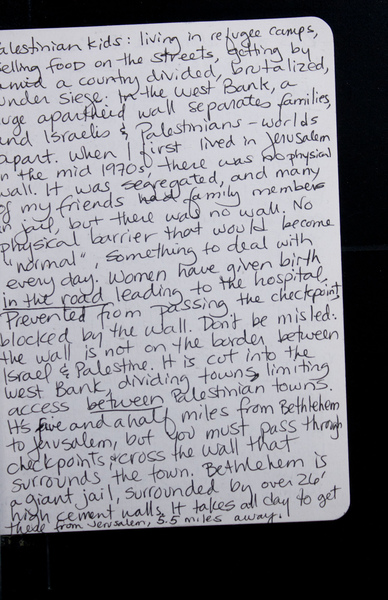 alestinian kids: living in refugee camps,
elling food on the streets, getting by
amid a country divided, brutalized,
under siege. In the West Bank, a
uge apartheid wall separates families,
and Israelis & Palestinians – worlds
apart. When I first lived in Jerusalem
in the mid 1970s, there was no physical
wall. It was segregated, and many
of my friends had family members
in jail, but there was no wall. No
physical barrier that would become
"normal", something to deal with
every day. Women have given birth
in the road leading to the hospital.
Prevented from passing the checkpoint,
blocked by the wall. Don't be misled:
the wall is not on the border between
Israel & Palestine. It is cut into the
West Bank, dividing towns, limiting
access between Palestinian towns.
It's five and a half miles from Bethlehem
to Jerusalem, but you must pass through
checkpoints & cross the wall that
surrounds the town. Bethlehem is
a giant jail, surrounded by over 26'
high cement walls. It takes all day to get
there from Jerusalem, 5.5 miles away.